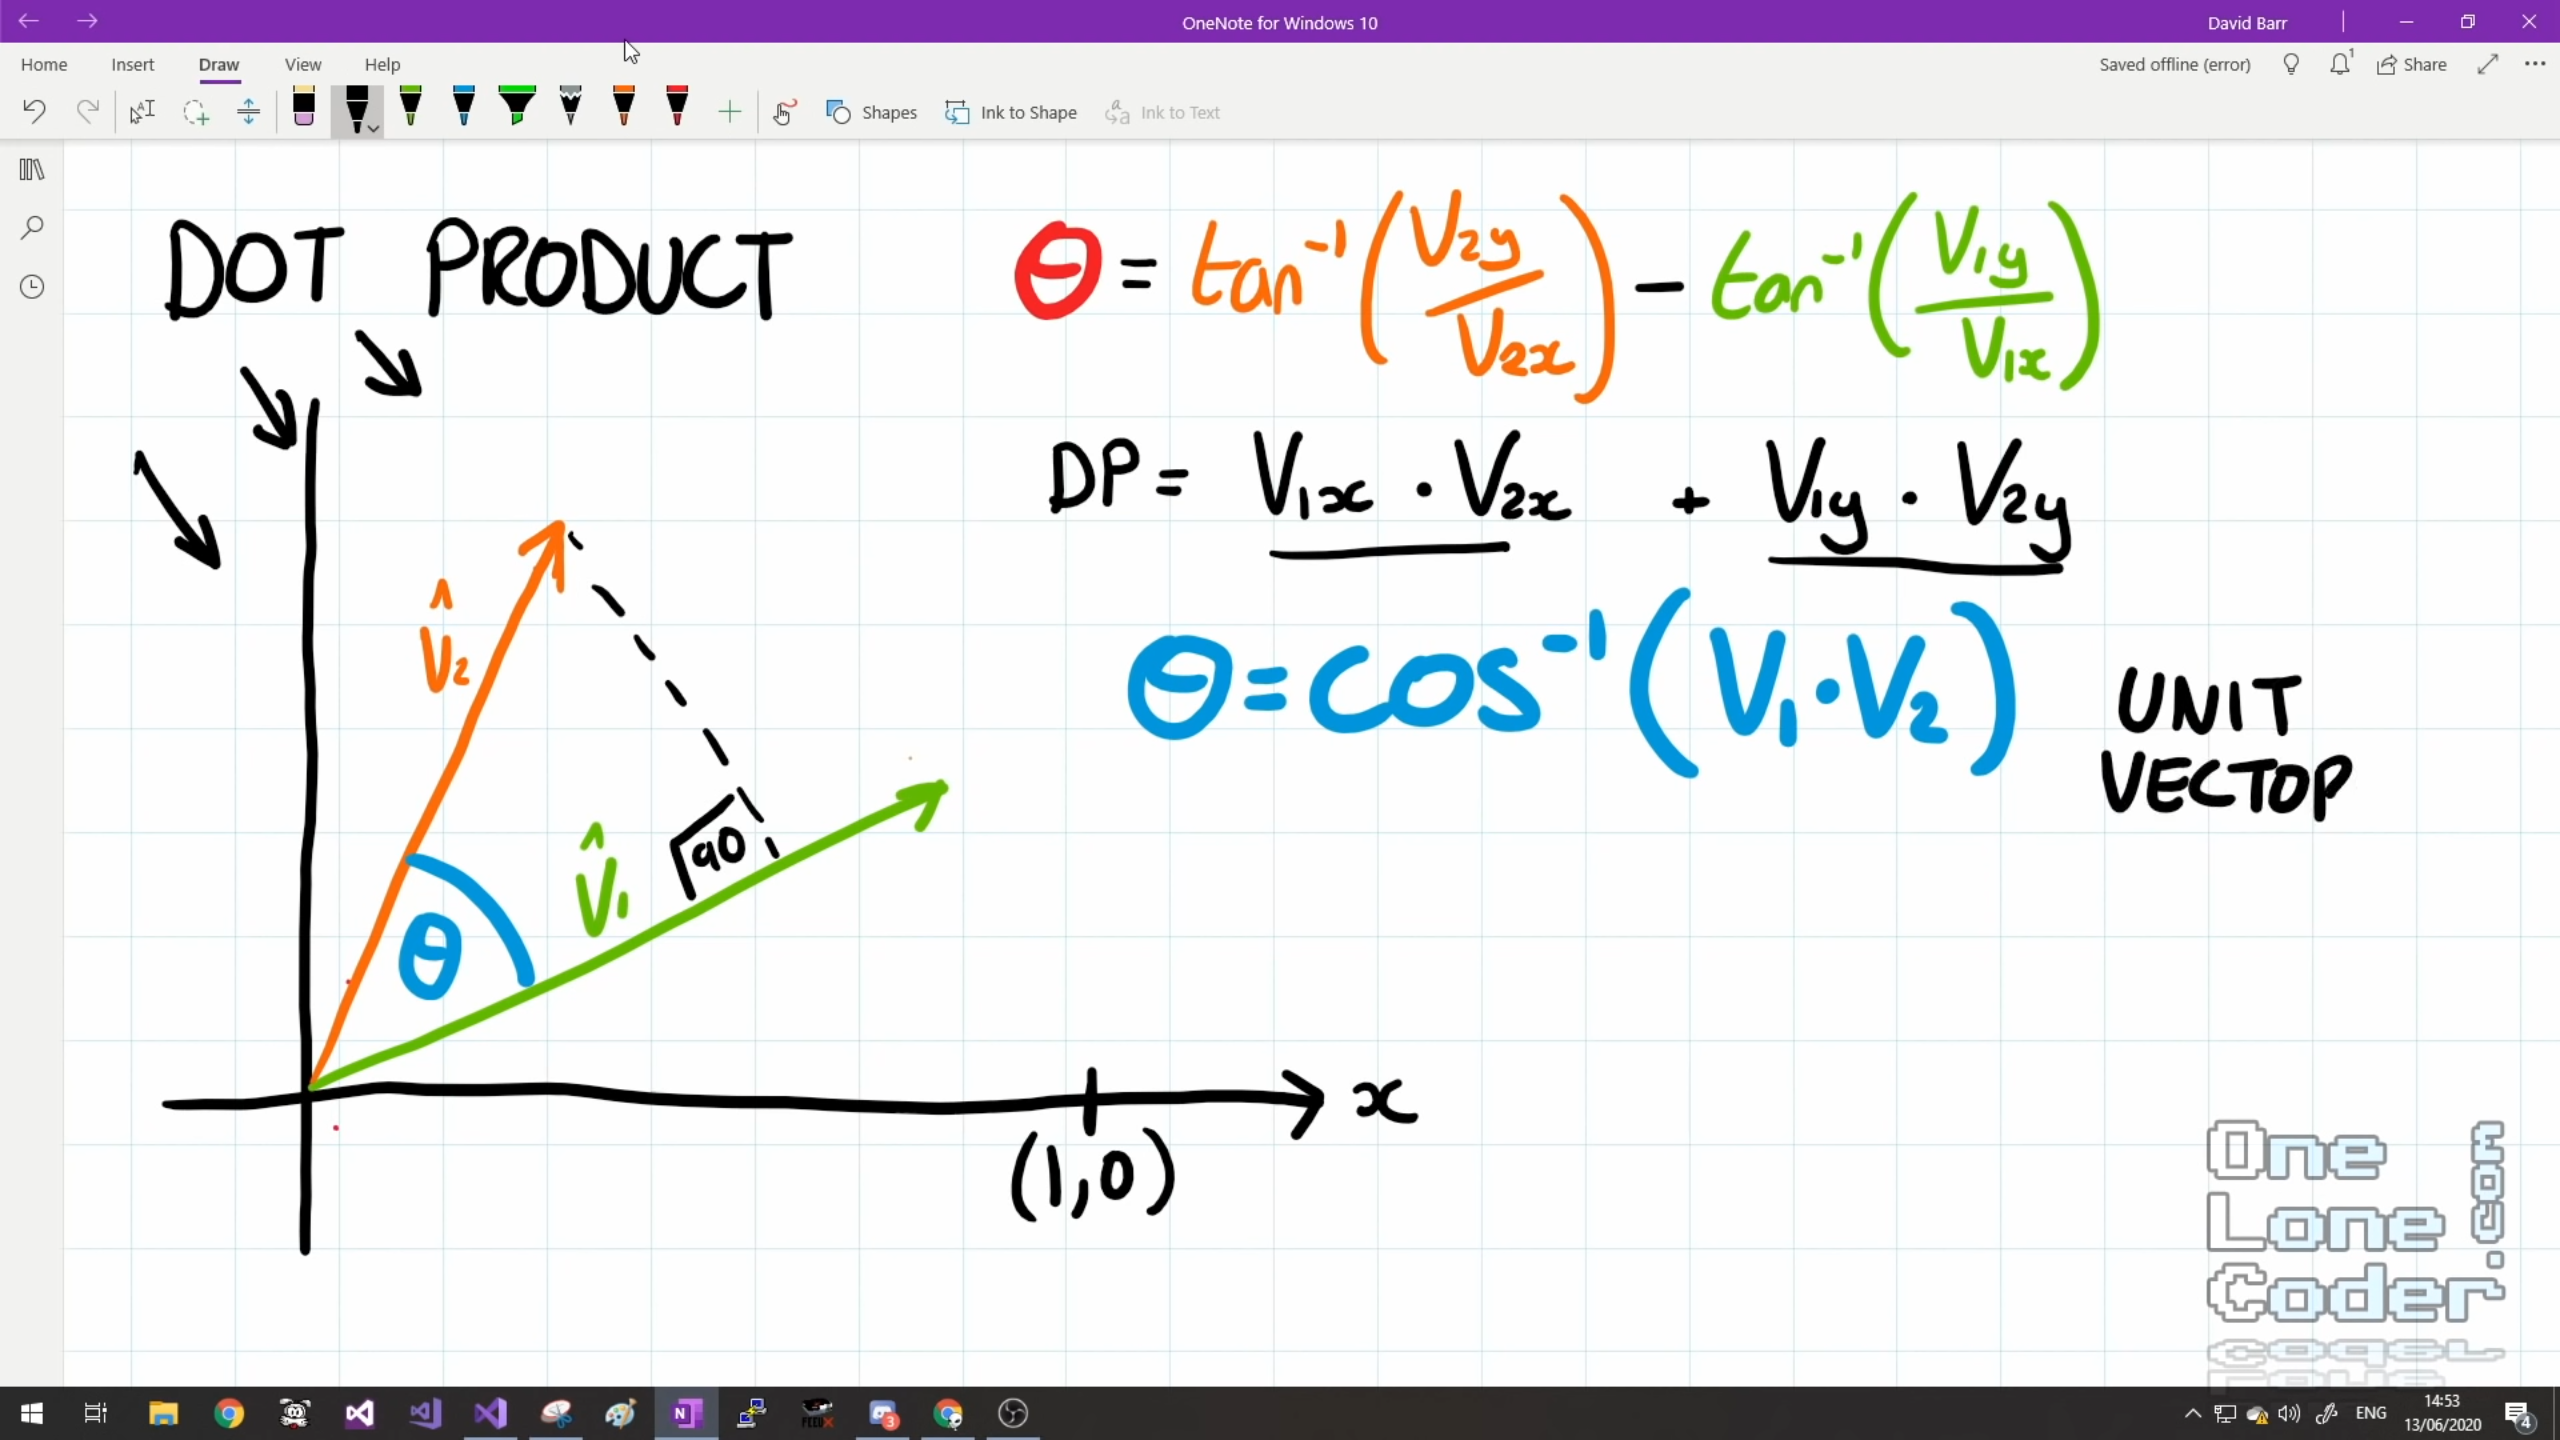 OneNote for Windows 10
David Barr
Home Insert Draw View Help
Saved offline (error)
1
Share
Shapes
Ink to Shape
Ink to Text
DOT PRODUCT
θ = tan⁻¹(V2y/V2x) − tan⁻¹(V1y/V1x)
DP = V1x · V2x + V1y · V2y
θ = cos⁻¹(V1 · V2)
UNIT
VECTOP
V̂2
V̂1
90
θ
x
(1,0)
One
Lone
Coder
.com
N
3
ENG
14:53
13/06/2020
4